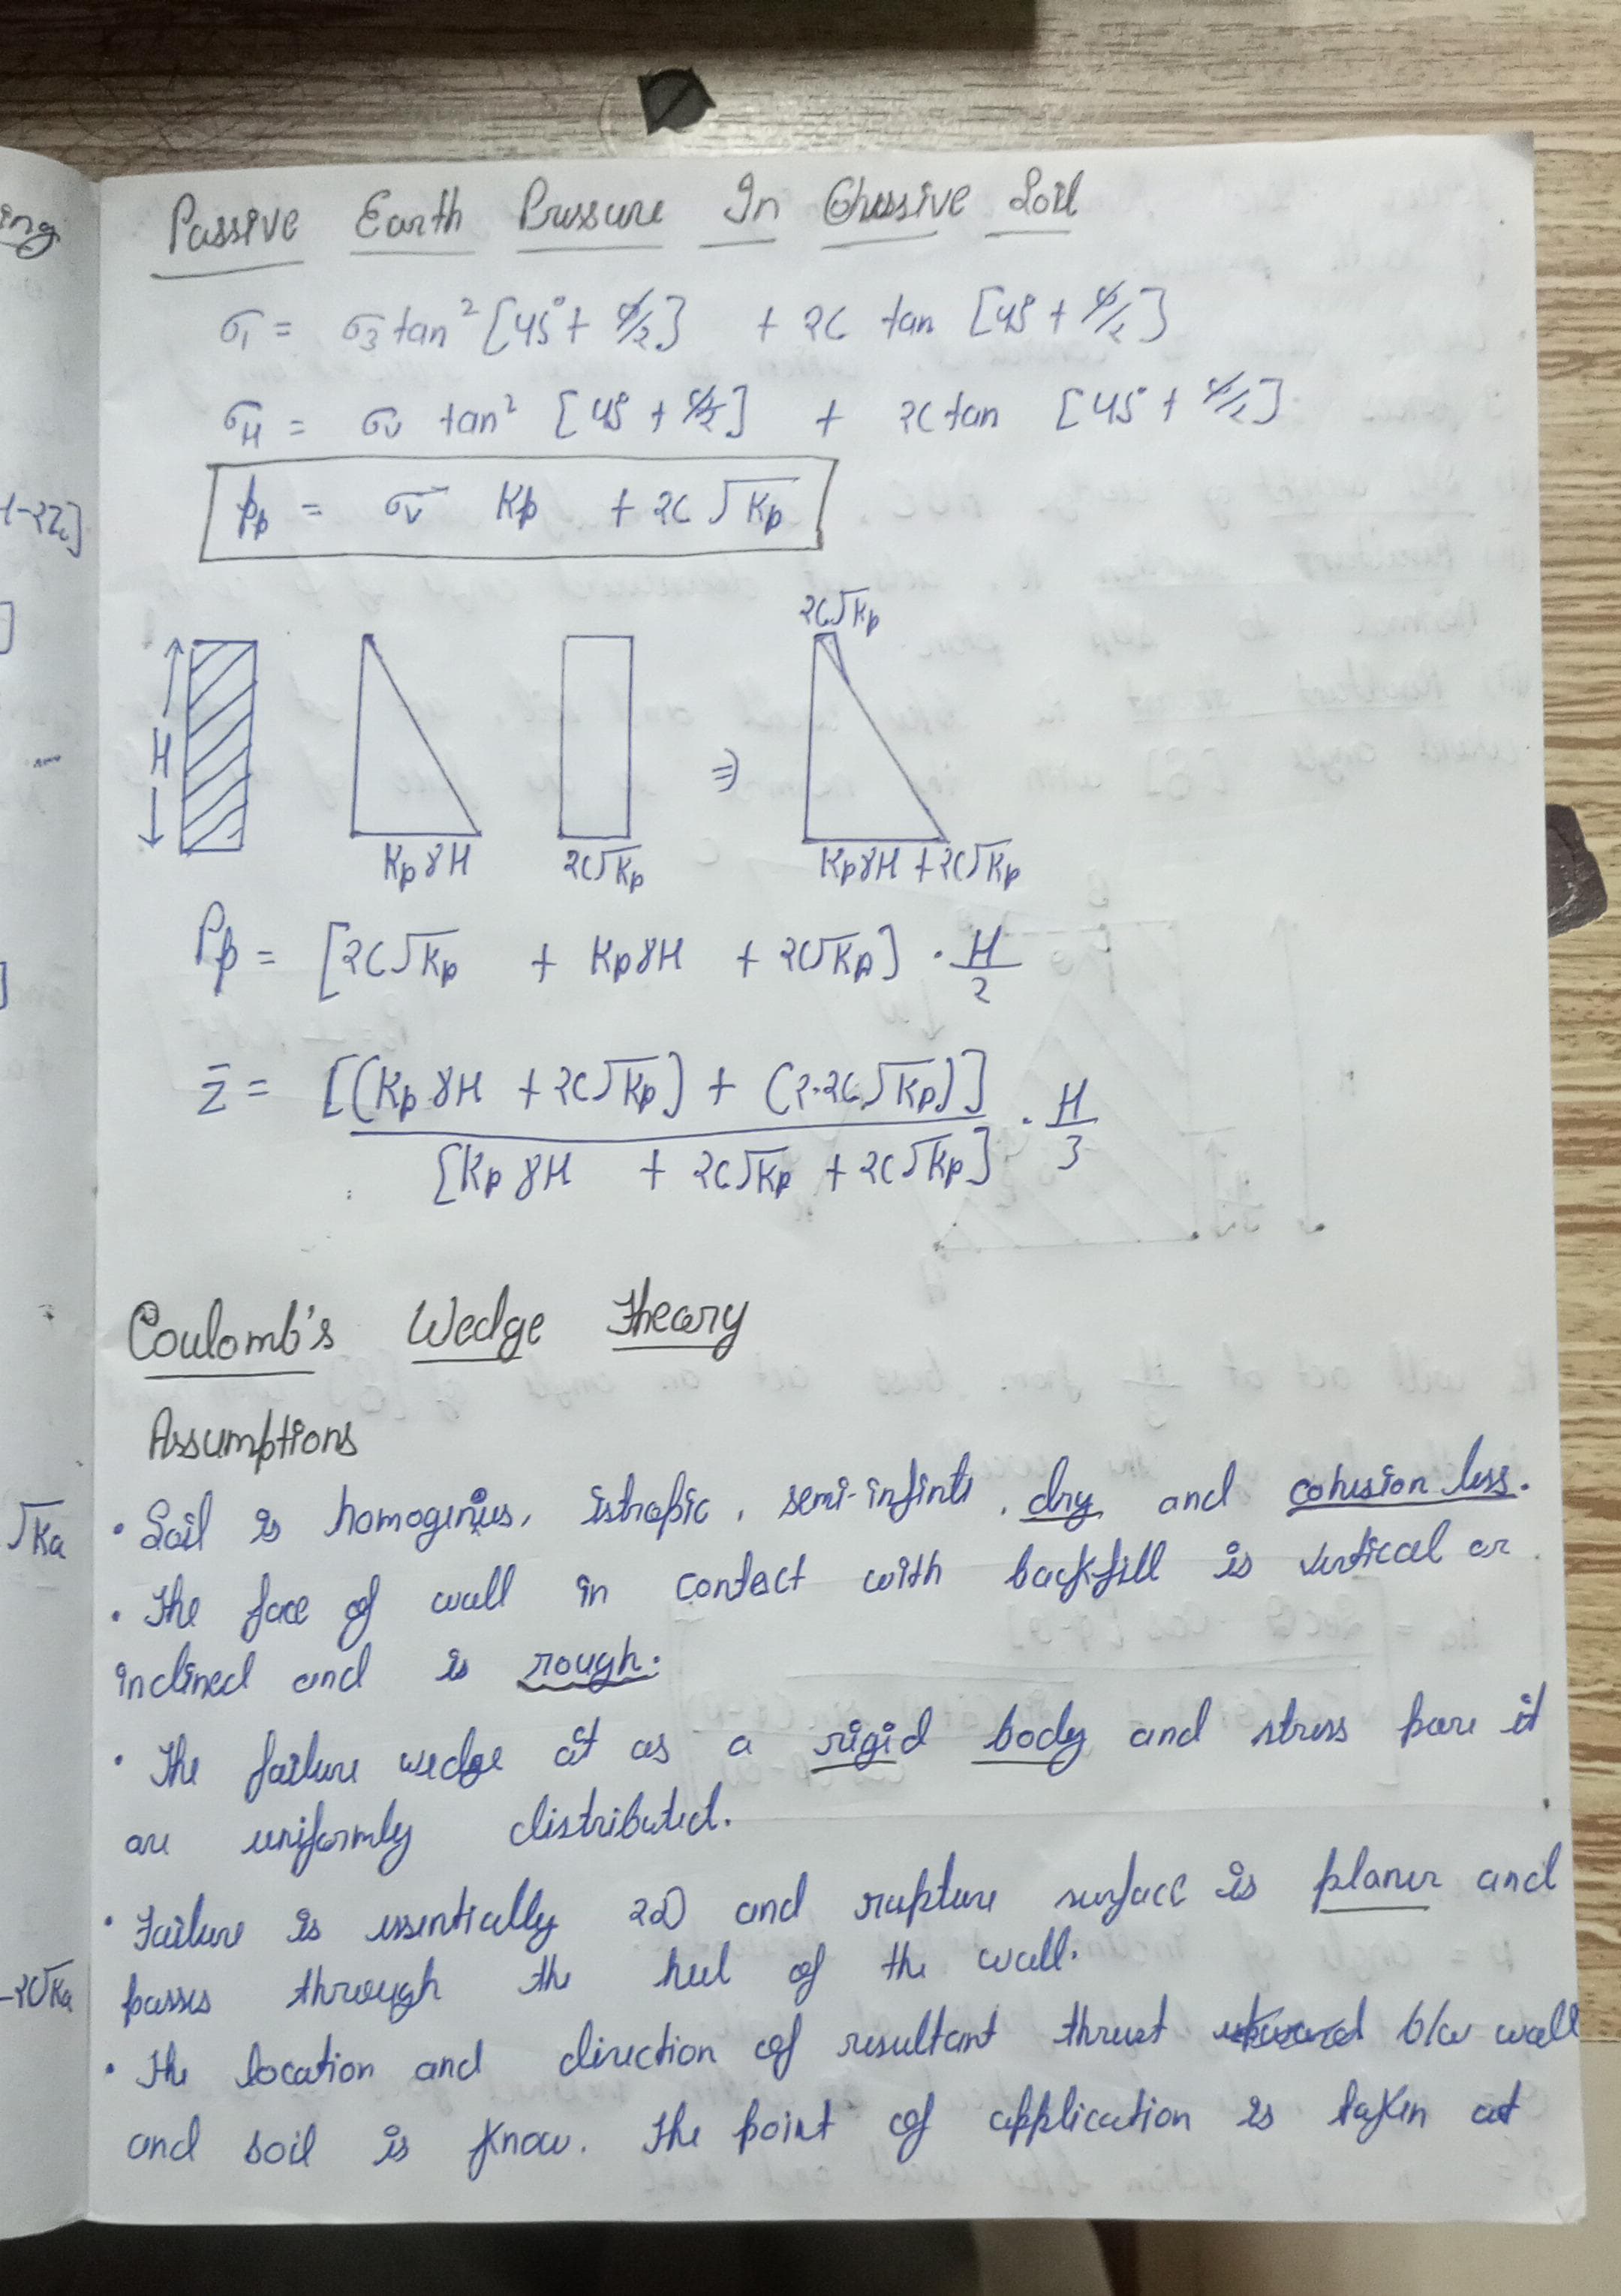 ing
Passive Earth Pressure In Cohessive Soil
σ₁ = σ₃ tan² [45° + φ/2] + 2C tan [45° + φ/2]
σH = σv tan² [45° + φ/2] + 2C tan [45° + φ/2]
Pp = σv Kp + 2C √Kp
-2Zc]
2C√Kp
H
⇒
KpγH 2C√Kp KpγH + 2C√Kp
Pp = [2C√Kp + KpγH + 2C√Kp] · H/2
z̄ = [(KpγH + 2C√Kp) + (2·2C√Kp)] / [KpγH + 2C√Kp + 2C√Kp] · H/3
Coulomb's Wedge Theory
Assumptions
√Ka
• Soil is homoginius, istropic, semi-infinte, dry and cohesion less.
• The face of wall in contact with backfill is vertical or
inclined and is rough.
• The failure wedge at as a rigid body and stress pare it
are uniformly distributed.
• Failure is essentially 2D and rupture surface is planer and
passes through the heel of the wall.
-2C√Ka
• The location and direction of resultant thrust b/w wall
and soil is know. The point of application is taken at